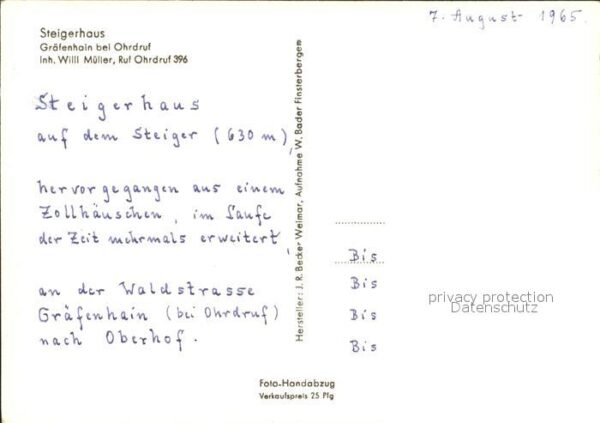 7. August 1965.
Steigerhaus
Gräfenhain bei Ohrdruf
Inh. Willi Müller, Ruf Ohrdruf 396
Steigerhaus
auf dem Steiger (630 m),
hervorgegangen aus einem
Zollhäuschen, im Laufe
der Zeit mehrmals erweitert,
an der Waldstrasse
Gräfenhain (bei Ohrdruf)
nach Oberhof.
Hersteller: J. R. Becker Weimar, Aufnahme W. Bader Finsterbergen
Bis
Bis
Bis
Bis
privacy protection
Datenschutz
Foto-Handabzug
Verkaufspreis 25 Pfg